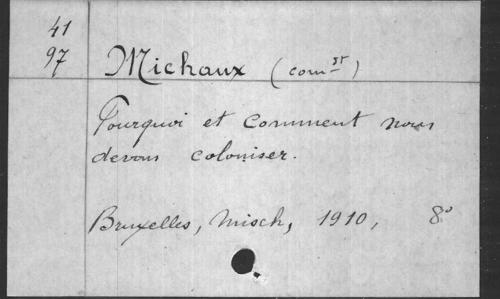 41
97 Michaux (comdt)
Pourquoi et comment nous
devons coloniser.
Bruxelles, Misch, 1910, 8°